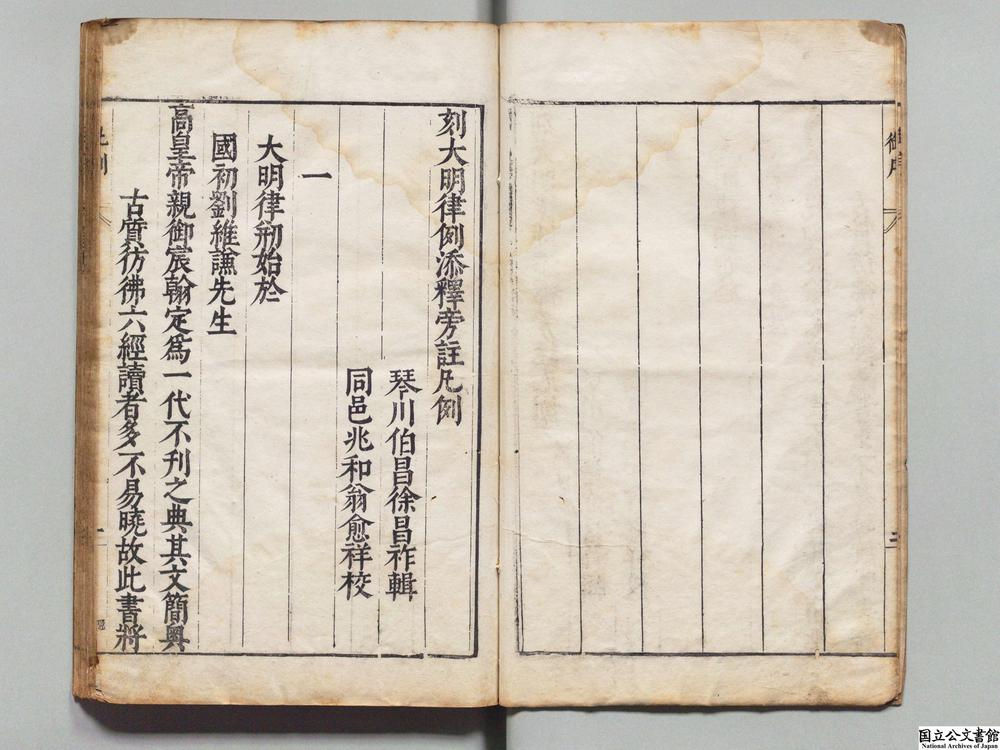 刻大明律例添釋旁註凡例
琴川伯昌徐昌祚輯
同邑兆和翁愈祥校
一
大明律刱始於
國初劉維謙先生
高皇帝親御宸翰定爲一代不刊之典其文簡奧
古質彷彿六經讀者多不易曉故此書將
国立公文書館
National Archives of Japan